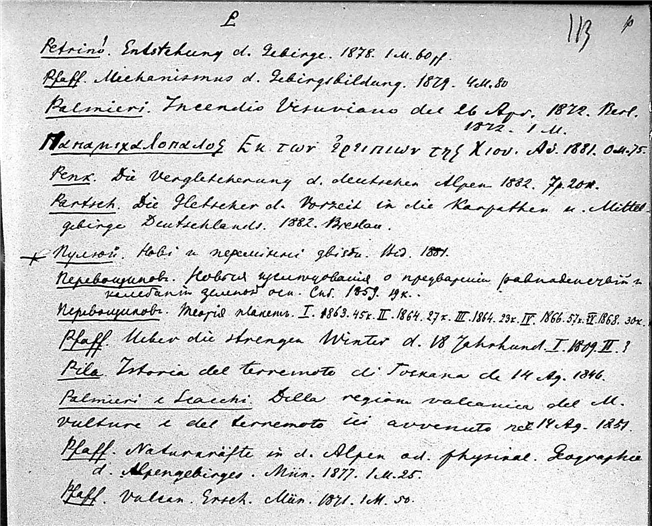 P 113 p
Petrinó. Entstehung d. Gebirge. 1878. 1 M. 60 pf.
Pfaff. Mechanismus d. Gebirgsbildung. 1879. 4M.80
Palmieri. Incendio Vesuviano del 26 Apr. 1872. Berl.
1872. 1 M.
Παπαμιχαλοπαλος Εκ των ἐρειπιων της Χιου. Αθ. 1881. 0M.75.
Penk. Die Vergletscherung d. deutschen Alpen 1882. 7p.20к.
Partsch. Die Gletscher d. Vorzeit in die Karpathen u. Mittel
gebirge Deutschlands. 1882. Breslau.
Пулюй. Нові и перемінні звізды. Від. 1881.
Перевощиковъ. Новыя изслѣдованія о предвареніи равноденствій и
колебаніи земной оси. Спб. 1859.
Перевощиковъ. Теорія планетъ. I. 1863. 45к. II. 1864. 27к. III. 1864. 23к. IV. 1866. 57к. VI. 1868. 30к.
Pfaff. Ueber die strengen Winter d. 18 Jahrhund. I. 1809. II. ?
Pila. Istoria del terremoto di Toskana de 14 Ag. 1846.
Palmieri e Scacchi. Della regione vulcanica del M.
Vulture e del terremoto ivi avvenuto nel 14 Ag. 1851.
Pfaff. Naturkräfte in d. Alpen od. physikal. Geographie
d. Alpengebirges. Mün. 1877. 1 M. 25.
Pfaff. Vulcan. Ersch. Mün. 1871. 1 M. 50.